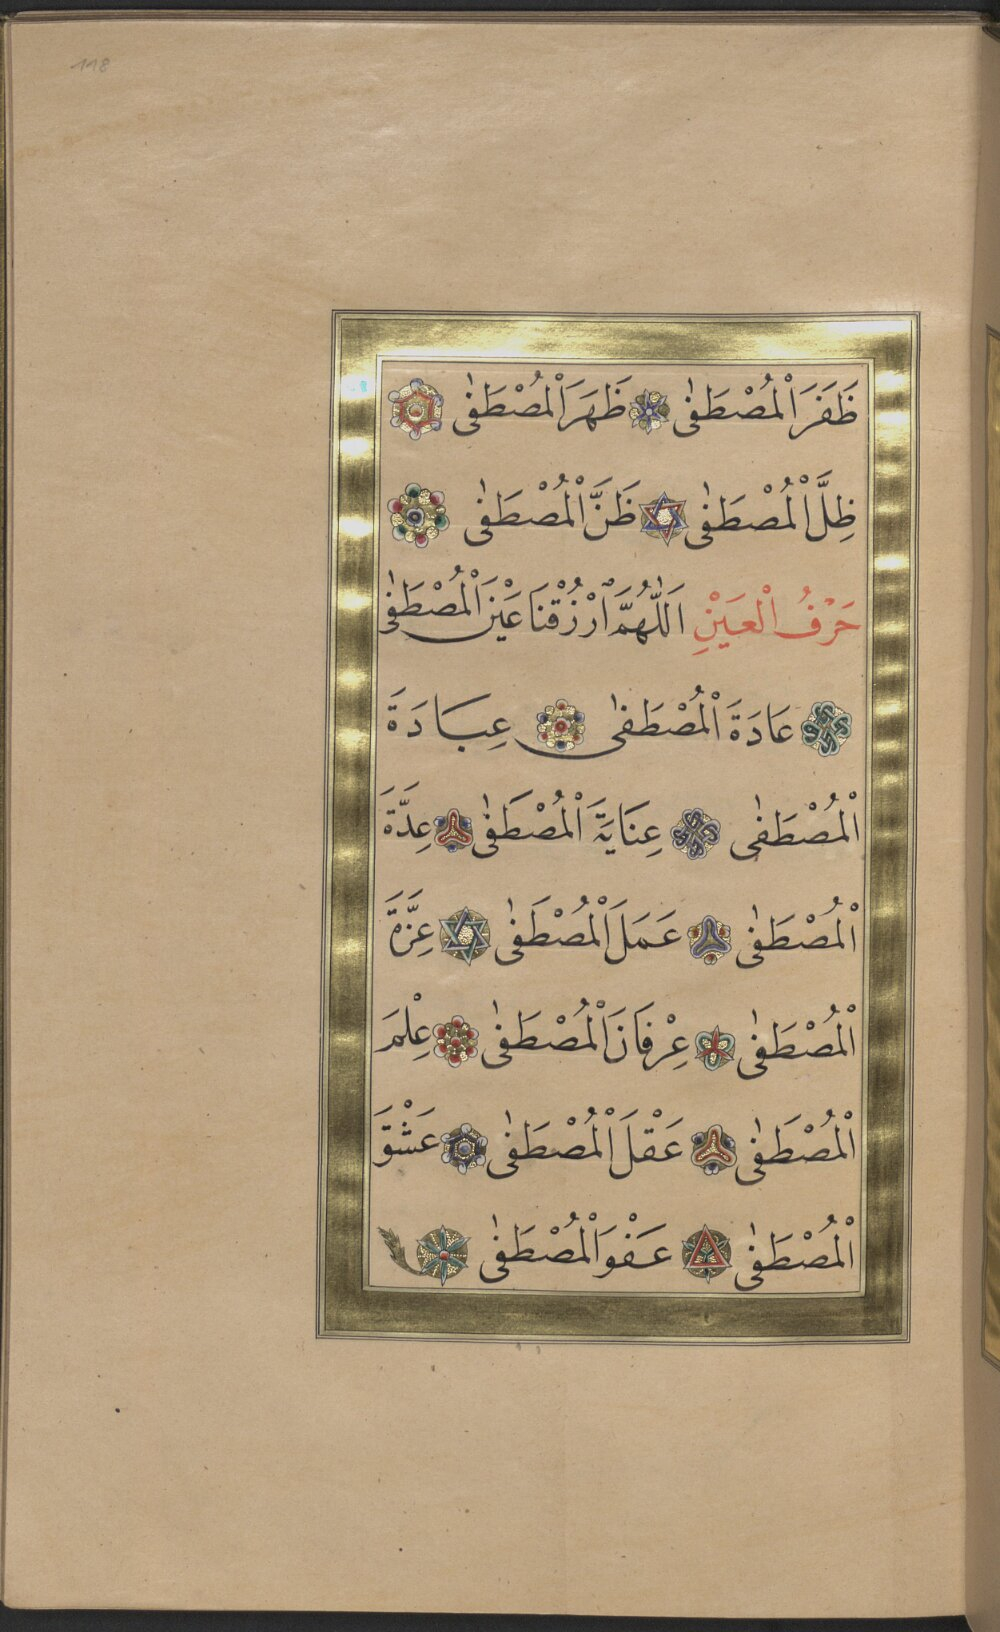 118
ظَفَرَ الْمُصْطَفٰى ظَهَرَ الْمُصْطَفٰى
ظِلَّ الْمُصْطَفٰى ظَنَّ الْمُصْطَفٰى
حَرْفُ الْعَيْنِ اَللّٰهُمَّ ارْزُقْنَا عَيْنَ الْمُصْطَفٰى
عَادَةَ الْمُصْطَفٰى عِبَادَةَ
الْمُصْطَفٰى عِنَايَةَ الْمُصْطَفٰى عِدَّةَ
الْمُصْطَفٰى عَمَلَ الْمُصْطَفٰى عِزَّةَ
الْمُصْطَفٰى عِرْفَانَ الْمُصْطَفٰى عِلْمَ
الْمُصْطَفٰى عَقْلَ الْمُصْطَفٰى عَشْقَ
الْمُصْطَفٰى عَفْوَ الْمُصْطَفٰى